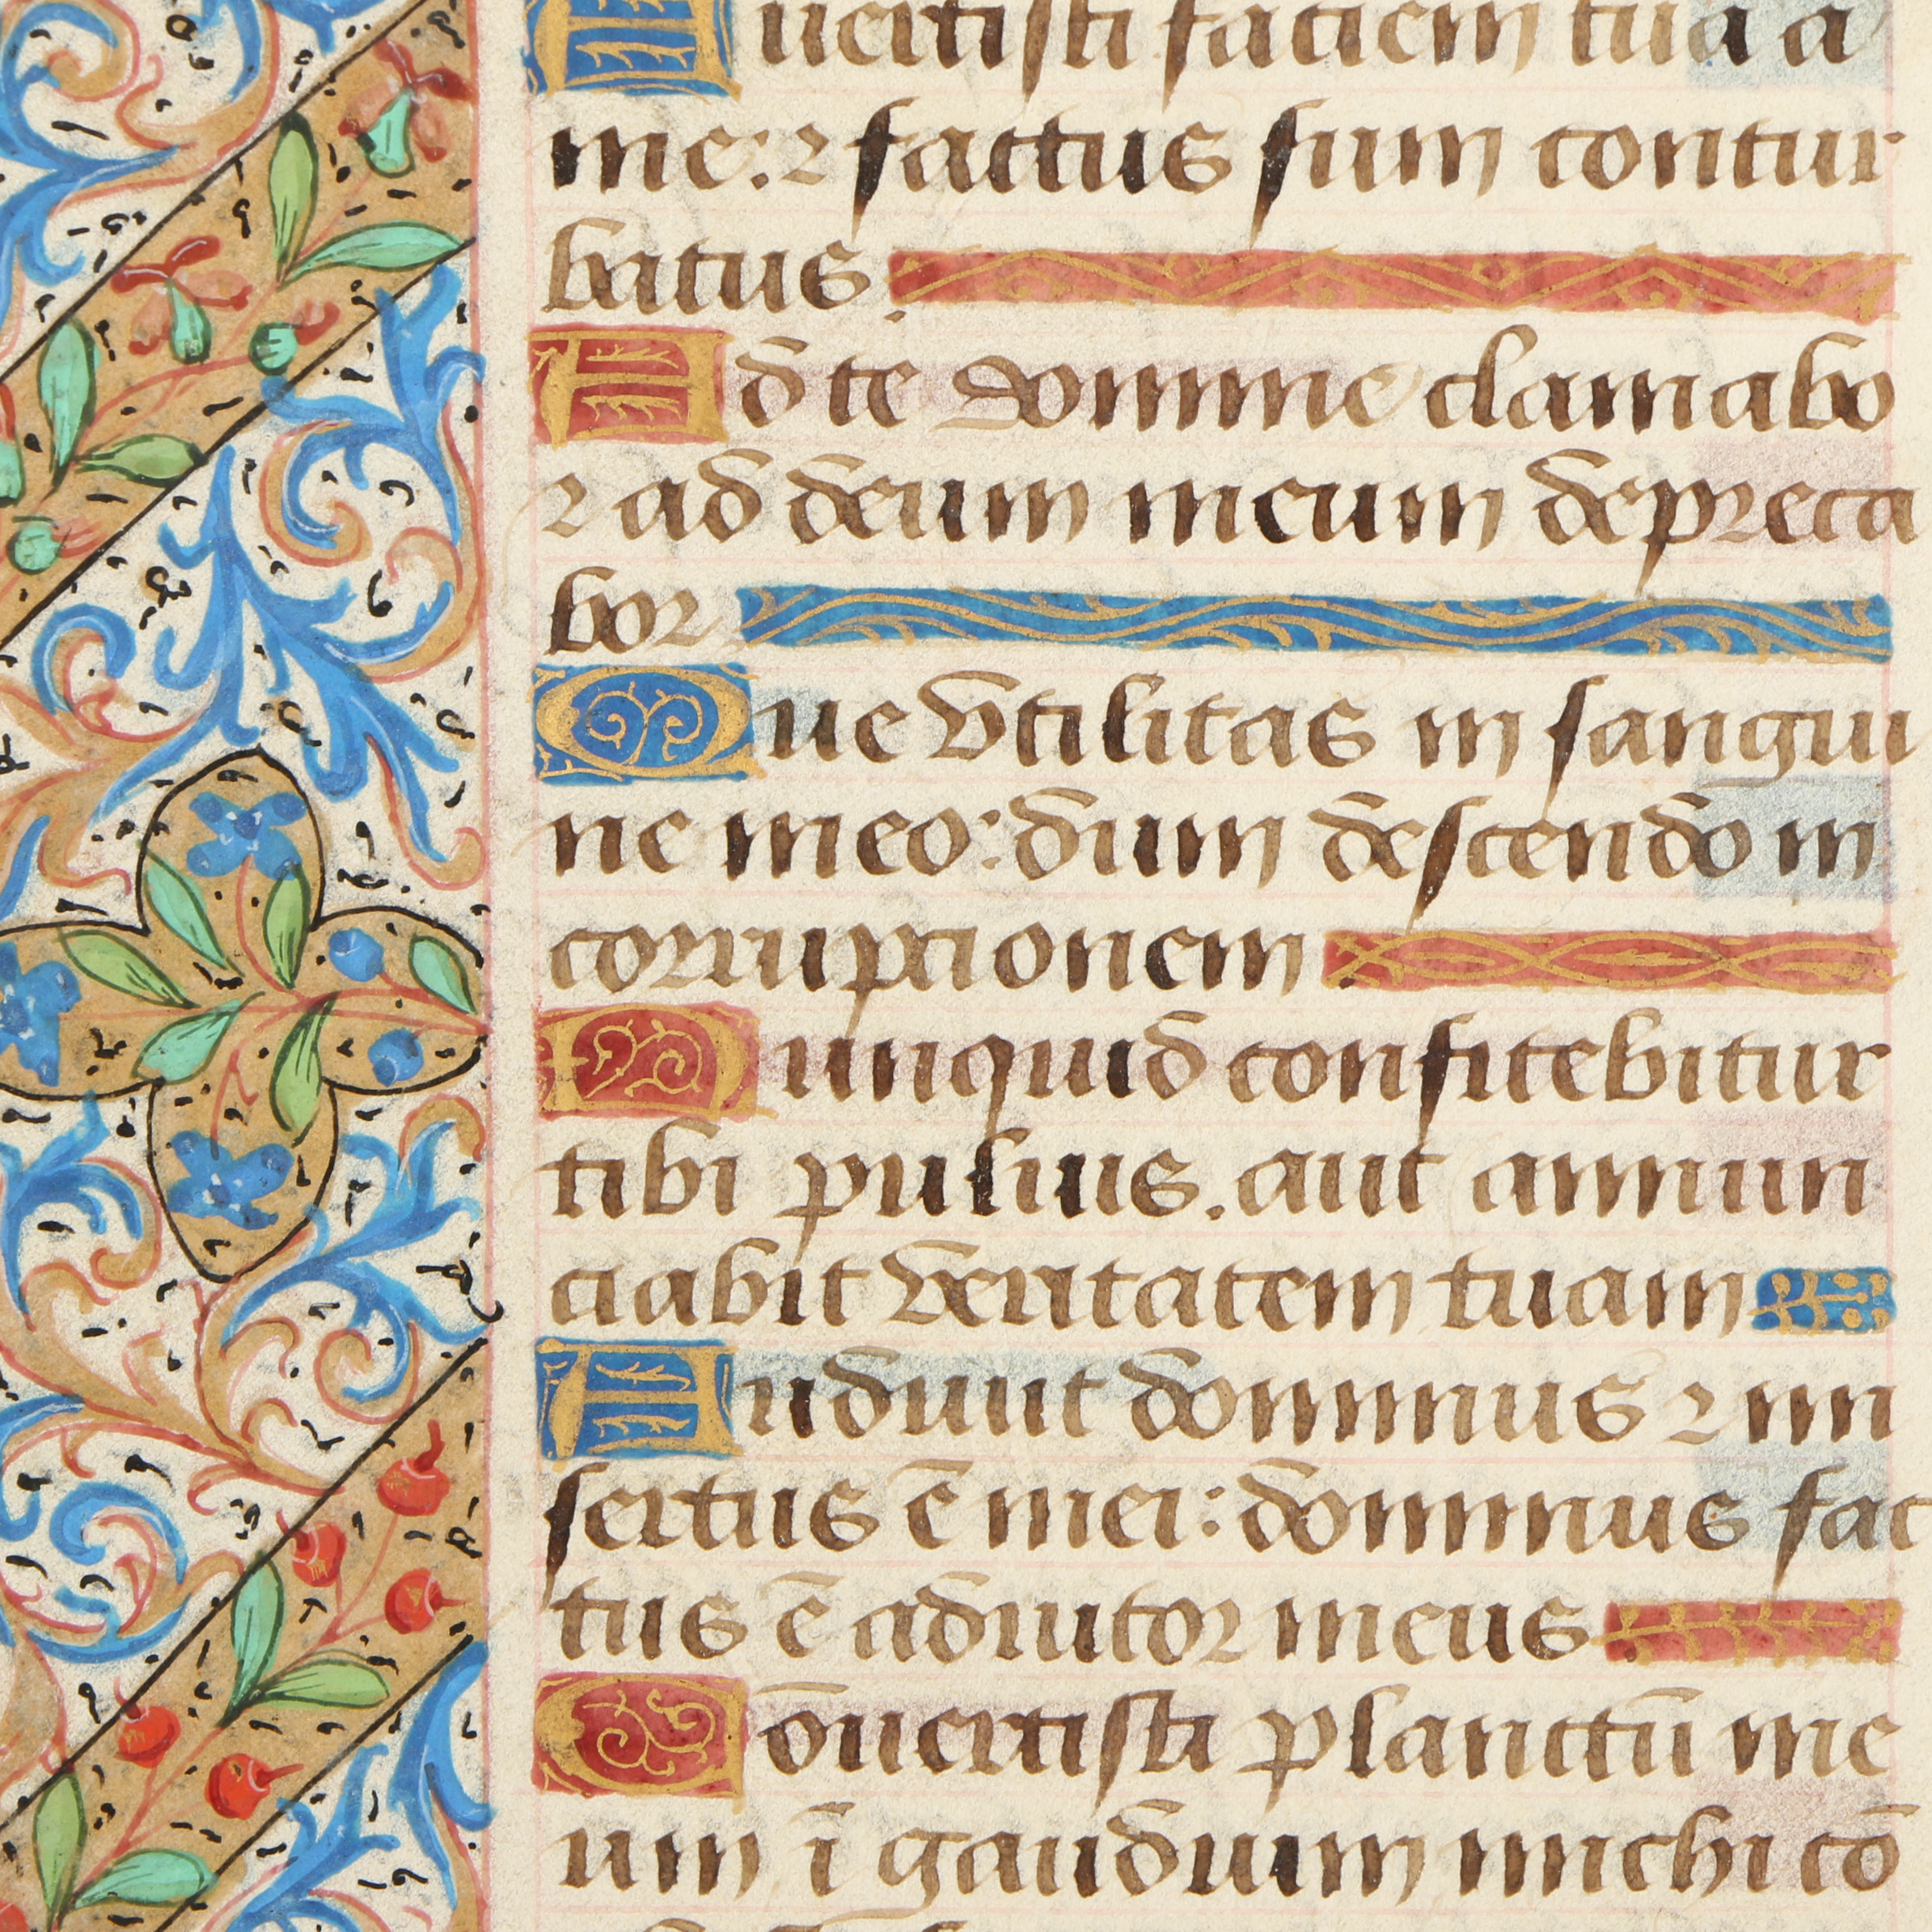 Auertisti faciem tuā a
me: ⁊ factus sum contur
batus.
Ad te domine clamabo
⁊ ad deum meum depreca
bor
Que vtilitas in sangui
ne meo: dum descendo in
corruptionem
Nunquid confitebitur
tibi puluis. aut annun
ciabit veritatem tuam
Audiuit dominus ⁊ mi
sertus ē mei: dominus fac
tus ē adiutor meus
Cōuertisti planctū me
um ī gaudium michi cō